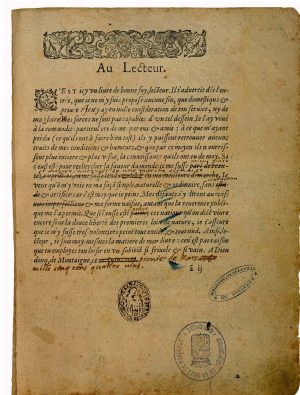 Au Lecteur.
C'EST icy vn liure de bonne foy, lecteur. Il t'aduertit dés l'en-
trée, que ie ne m'y suis proposé aucune fin, que domestique &
priuée : ie n'y ay eu nulle consideration de ton seruice, ny de
ma gloire. Mes forces ne sont pas capables d'vn tel dessein. Ie l'ay voué
à la commodité particuliere de mes parens & amis : à ce que m'ayant
perdu (ce qu'ils ont à faire bien tost) ils y puissent retrouuer aucuns
traits de mes conditions & humeurs, & que par ce moyen ils nour-
rissent plus entiere & plus vifue, la connoissance qu'ils ont eu de moy. Si
c'eust esté pour rechercher la faueur du monde, ie me fusse
veux qu'on m'y voie en ma façon simple, naturelle & ordinaire, sans
& artifice : car c'est moy que ie peins. Mes defauts s'y liront au vif,
& ma forme naifue, autant que la reuerence publi-
que me l'a permis. Que si i'eusse esté entre ces nations qu'on dict viure
encore sous la douce liberté des premieres loix de nature, ie t'asseure
que ie m'y fusse tres-volontiers peint tout entier, & tout nud. Ainsi, le-
cteur, ie suis moy-mesmes la matiere de mon liure : ce n'est pas raison
que tu employes ton loisir en vn subiect si friuole & si vain. A Dieu
donq, de Montaigne, ce premier de Mars
mille cinq cens quatre vins.
ã ij